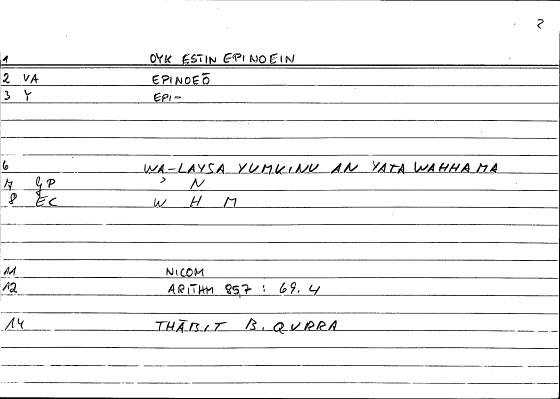 2
1 OYK ESTIN EPINOEIN
2 VA EPINOEŌ
3 Y EPI-
6 WA-LAYSA YUMKINU AN YATAWAHHAMA
7 GP ʾ N
8 EC W H M
11 NICOM
12 ARITHM 85,7 : 69.4
14 THĀBIT B. QURRA